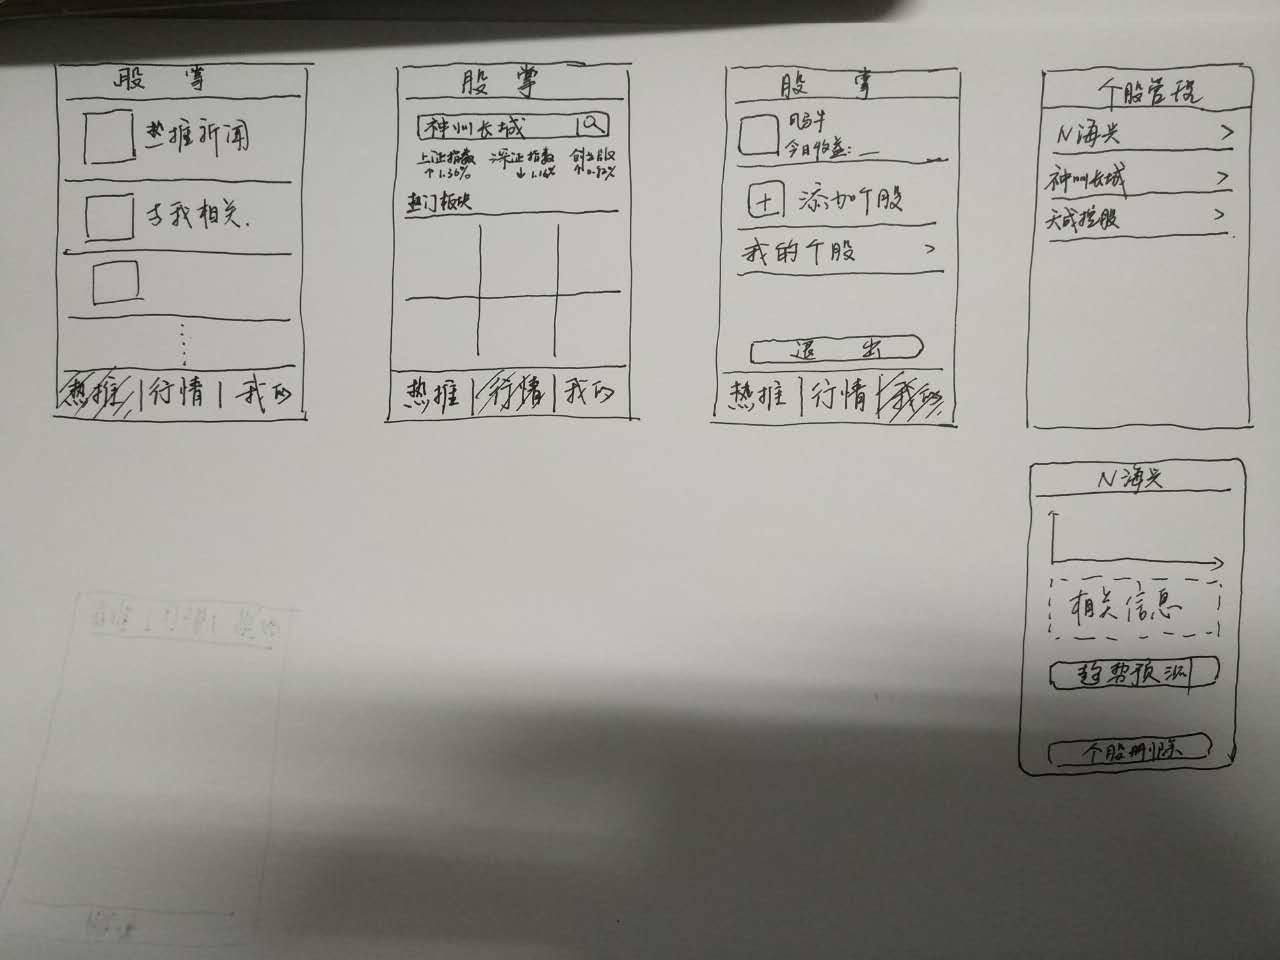 股 掌
热推新闻
与我相关.
热推 | 行情 | 我的
股 掌
神州长城
上证指数 深证指数 创业板
↑1.36% ↓1.16% ↑0.82%
热门板块
热推 | 行情 | 我的
股 掌
今日收益: _
+ 添加个股
我的个股 >
退 出
热推 | 行情 | 我的
个股管理
N海兴 >
神州长城 >
天成控股 >
N海兴
相关信息
趋势预测
个股删除